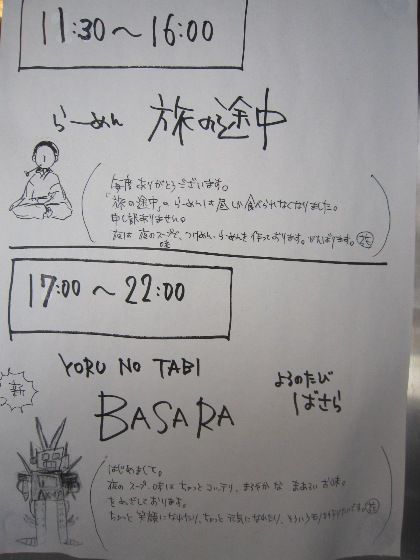 11:30～16:00
らーめん 旅の途中
毎度ありがとうございます。
「旅の途中」のらーめんは昼しか食べられなくなりました。
申し訳ありません。
夜は夜のスープ、味で、つけめん、らーめんを作っております。がんばります。
17:00～22:00
YORU NO TABI
よるのたび
新
BASARA
ばさら
はじめまして。
夜のスープ・味はちょっとコッテリ、まろやかな まあるいお味。
をめざしております。
ちょっと笑顔になれたり、ちょっと元気になれたり、そういう